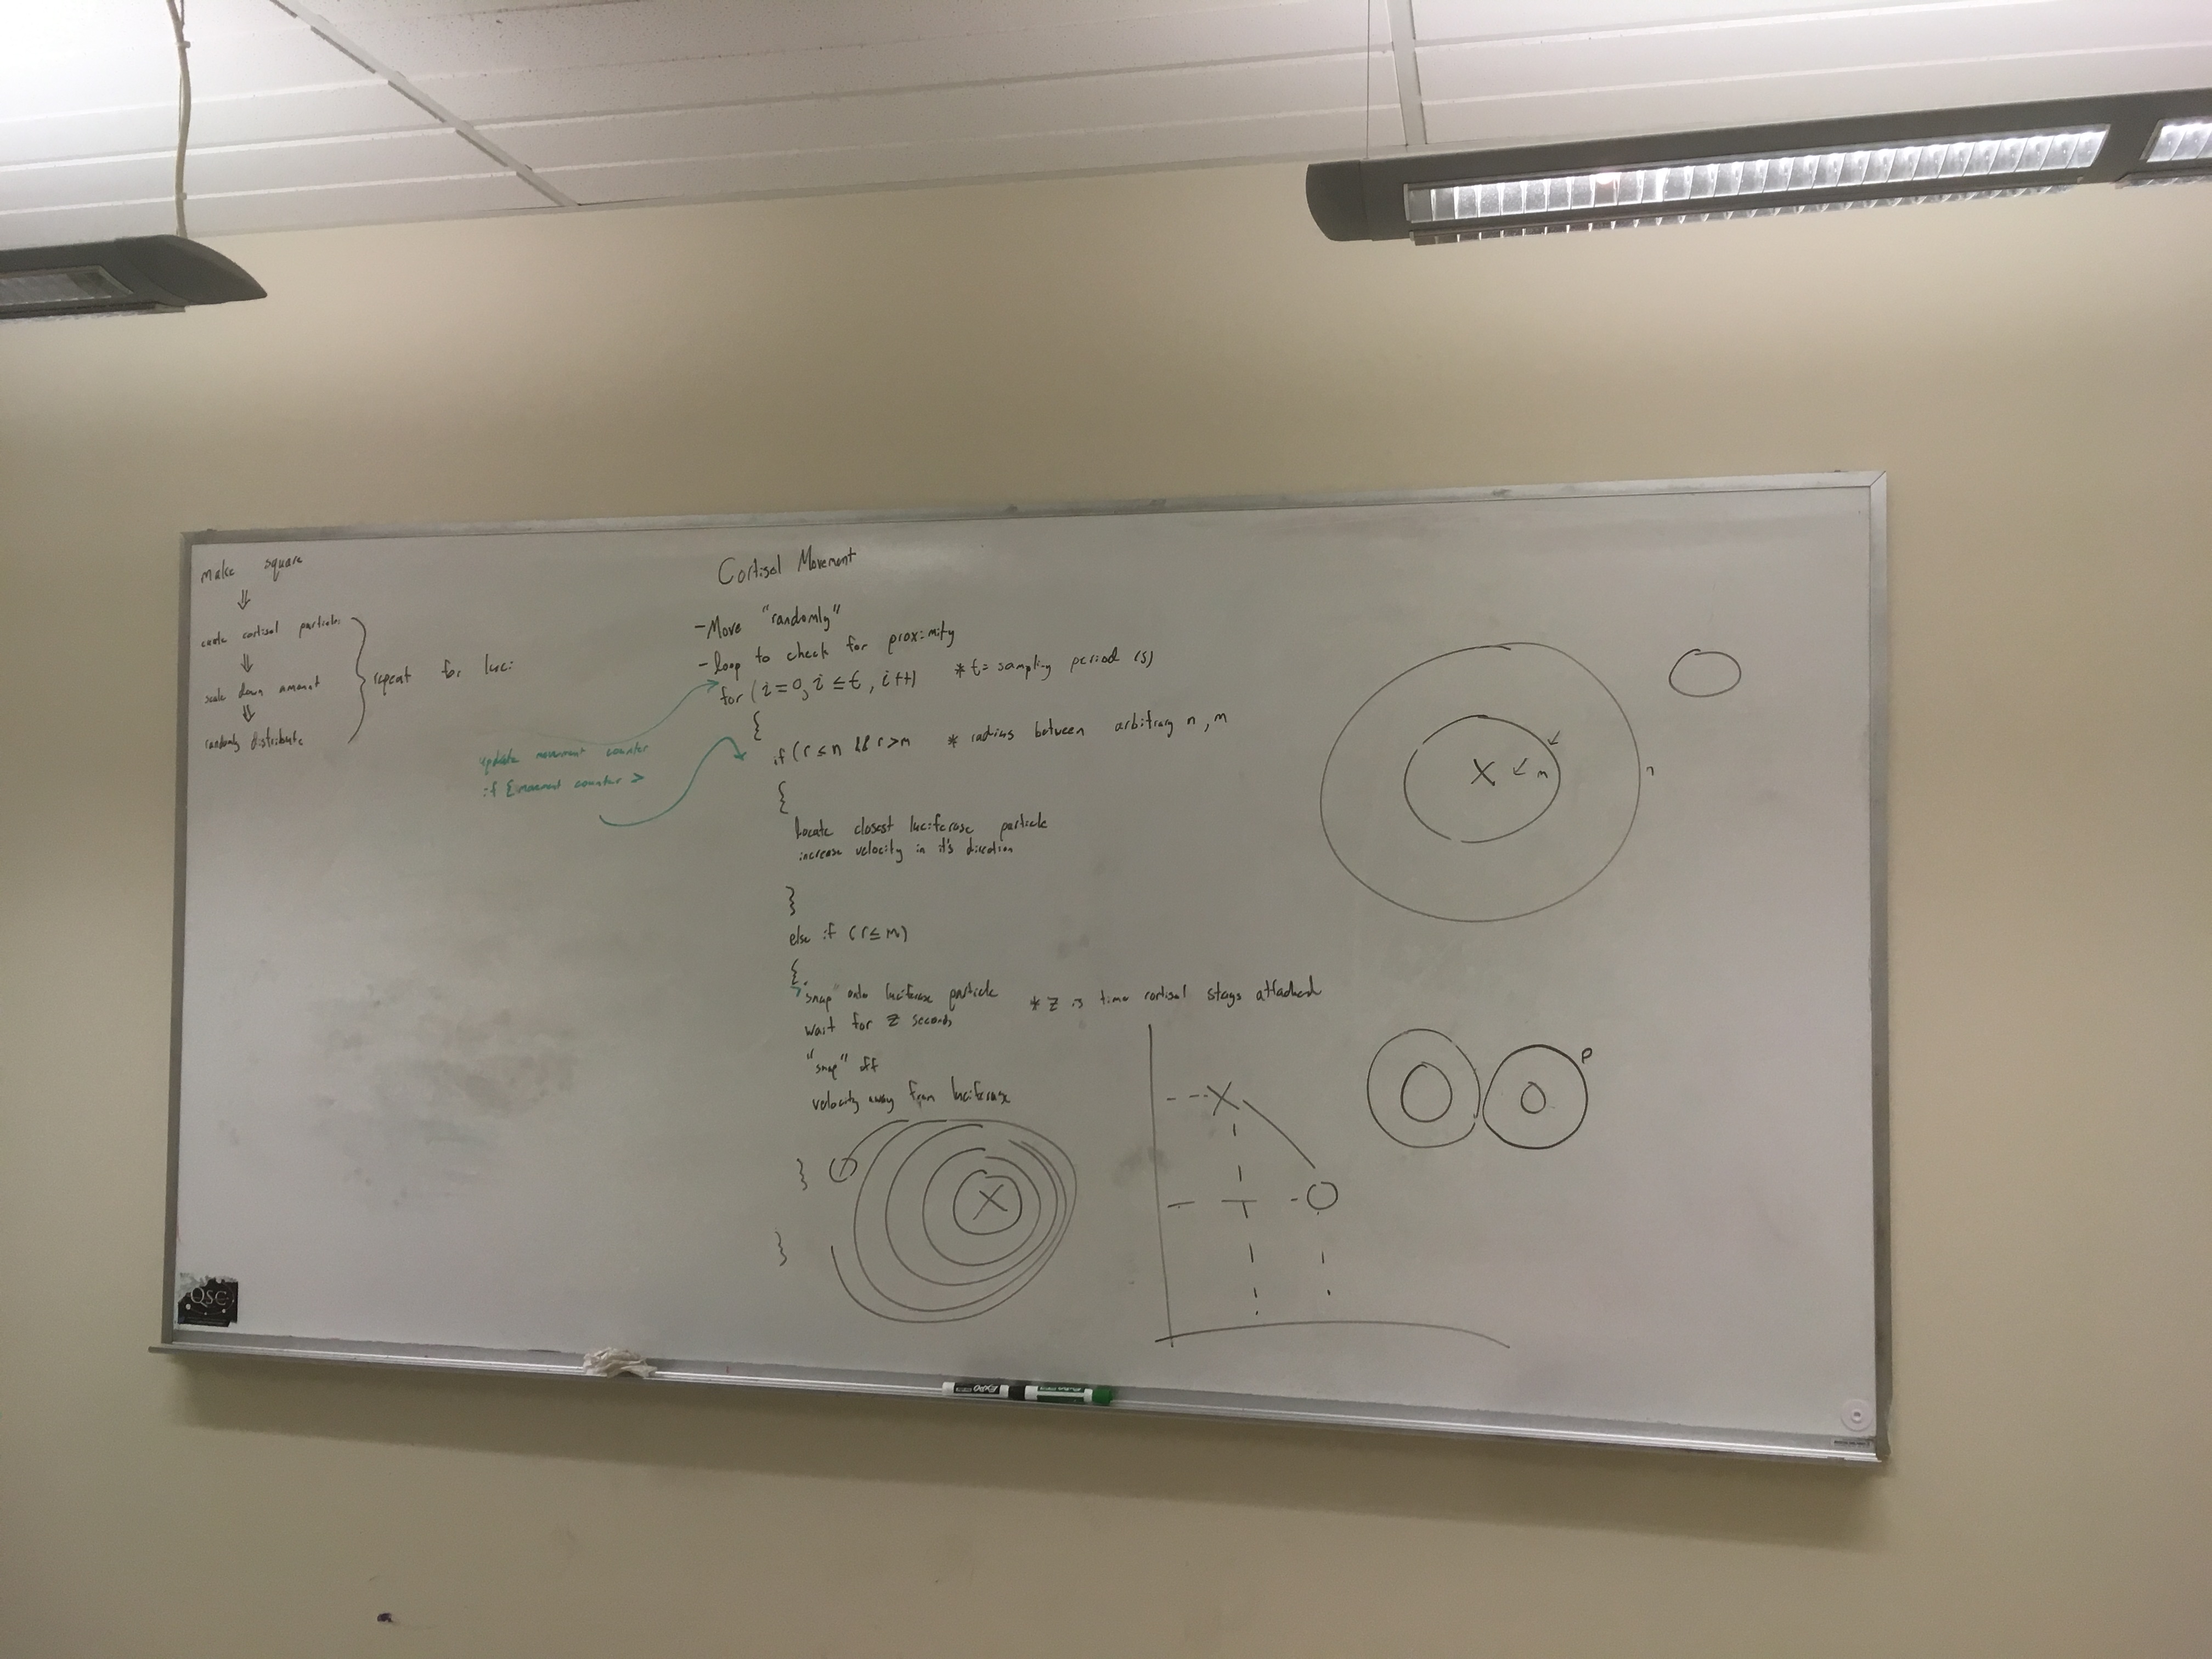 make square
⇓
create cortisol particles
⇓
scale down amount
⇓
randomly distribute
repeat for luci
update movement counter
if {movement counter >
Cortisol Movement
- Move "randomly"
- loop to check for proximity
for (i=0, i ≤ t, i++) * t= sampling period (s)
{
if (r ≤ n && r > m * radius between arbitrary n, m
{
Locate closest luciferase particle
increase velocity in it's direction
}
else if (r ≤ m)
{
"snap" onto luciferase particle * z is time cortisol stays attached
wait for z seconds
"snap" off
velocity away from luciferase
}
}
X m
n
P
X
X
QSC
EXPO